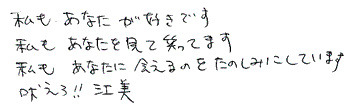 私も あなたが好きです
私も あなたを見て笑ってます
私も あなたに会えるのをたのしみにしています
吠えろ!! 江美